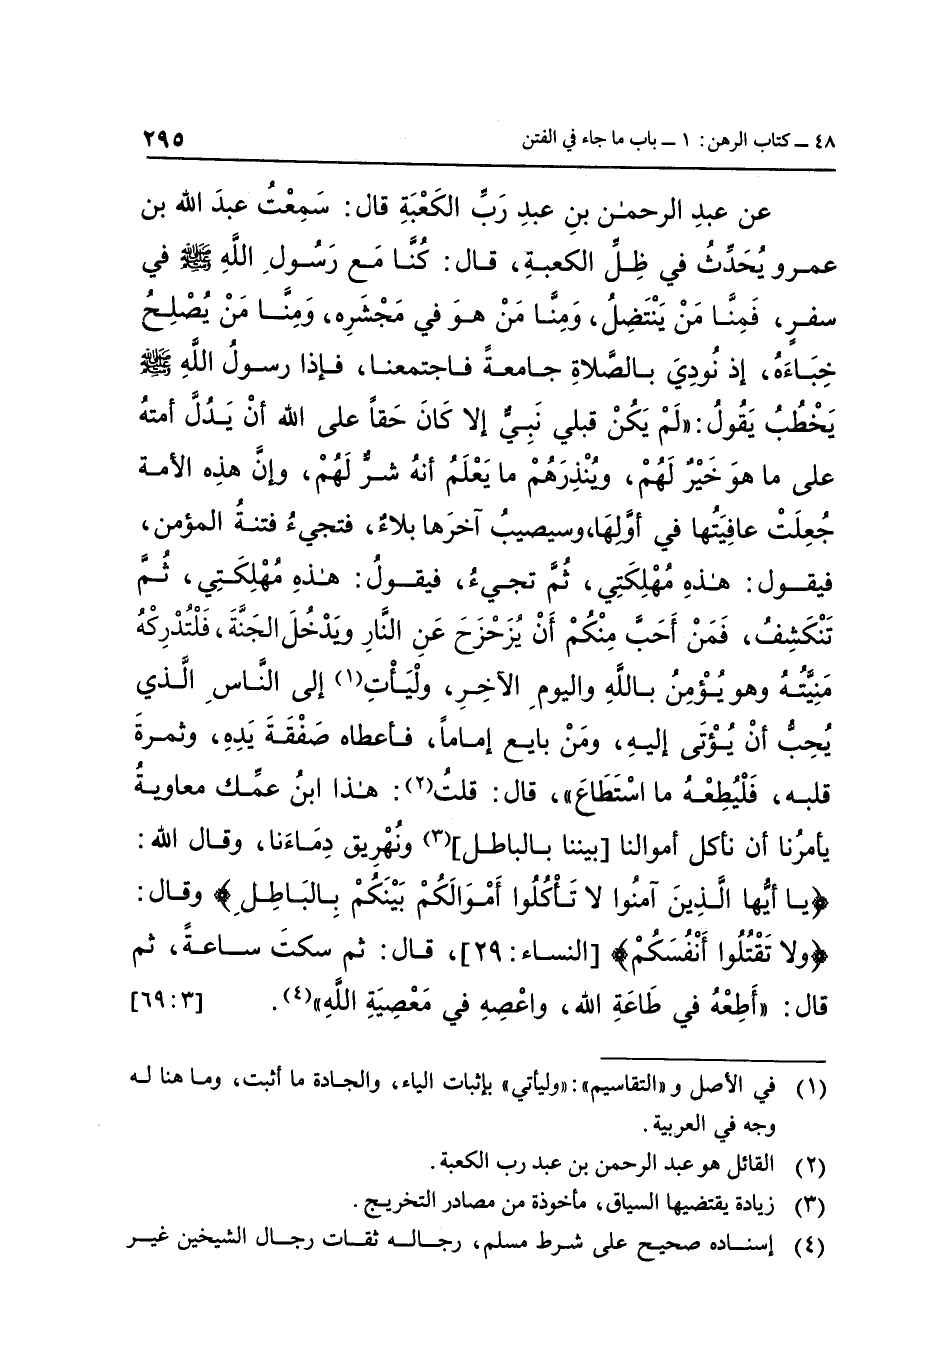 ٤٨ ـ كتاب الرهن: ١ ـ باب ما جاء في الفتن ٢٩٥
عن عبدِ الرحمـٰن بنِ عبدِ رَبِّ الكَعْبَةِ قال: سَمِعْتُ عبدَ الله بن
عمرو يُحَدِّثُ في ظِلِّ الكعبةِ، قال: كُنَّا مَع رَسُولِ اللَّهِ ﷺ في
سفرٍ، فَمِنَّا مَنْ يَنْتَضِلُ، وَمِنَّا مَنْ هوَ في مَجْشَرِه، وَمِنَّا مَنْ يُصْلِحُ
خِبَاءَهُ، إذ نُودِيَ بالصَّلاةِ جامعةً فاجتمعنا، فإذا رسولُ اللَّهِ ﷺ
يَخْطُبُ يَقُولُ: «لَمْ يَكُنْ قبلي نَبِيٌّ إلا كَانَ حَقاً على الله أنْ يَدُلَّ أمتهُ
على ما هوَ خَيْرٌ لَهُمْ، ويُنْذِرَهُمْ ما يَعْلَمُ أنهُ شرٌّ لَهُمْ، وإنَّ هذِه الأمة
جُعِلَتْ عافِيَتُها في أوَّلِهَا،وسيصيبُ آخرَها بلاءٌ، فتجيءُ فتنةُ المؤمن،
فيقول: هـٰذهِ مُهْلِكَتِي، ثُمَّ تجيءُ، فيقولُ: هـٰذهِ مُهْلِكَتِي، ثُمَّ
تَنْكَشِفُ، فَمَنْ أَحَبَّ مِنْكُمْ أَنْ يُزَحْزَحَ عَنِ النَّارِ ويَدْخُلَ الجَنَّةَ، فَلْتُدْرِكْهُ
مَنِيَّتُهُ وهو يُؤْمِنُ باللَّهِ واليومِ الآخِرِ، ولْيَأْتِ(١) إلى النَّاسِ الَّذي
يُحِبُّ أنْ يُؤْتَى إليهِ، ومَنْ بايع إماماً، فأعطاه صَفْقَةَ يَدِهِ، وثمرةَ
قلبه، فَلْيُطِعْهُ ما اسْتَطَاعَ»، قال: قلتُ(٢): هـٰذا ابنُ عمِّك معاويةُ
يأمرُنا أن نأكل أموالنا [بيننا بالباطل](٣) ونُهْرِيق دِمَاءَنا، وقال الله:
﴿يا أيُّها الَّذِينَ آمنُوا لا تَأْكُلُوا أَمْوَالَكُمْ بَيْنَكُمْ بِالبَاطِلِ﴾ وقال:
﴿ولا تَقْتُلُوا أَنْفُسَكُمْ﴾ [النساء: ٢٩]، قال: ثم سكتَ ساعةً، ثم
قال: «أَطِعْهُ في طَاعَةِ الله، واعْصِهِ في مَعْصِيَةِ اللَّهِ»(٤). [٣: ٦٩]
(١) في الأصل و «التقاسيم»: «وليأتي» بإثبات الياء، والجادة ما أثبت، وما هنا له
وجه في العربية.
(٢) القائل هو عبد الرحمن بن عبد رب الكعبة.
(٣) زيادة يقتضيها السياق، مأخوذة من مصادر التخريج.
(٤) إسناده صحيح على شرط مسلم، رجاله ثقات رجال الشيخين غير